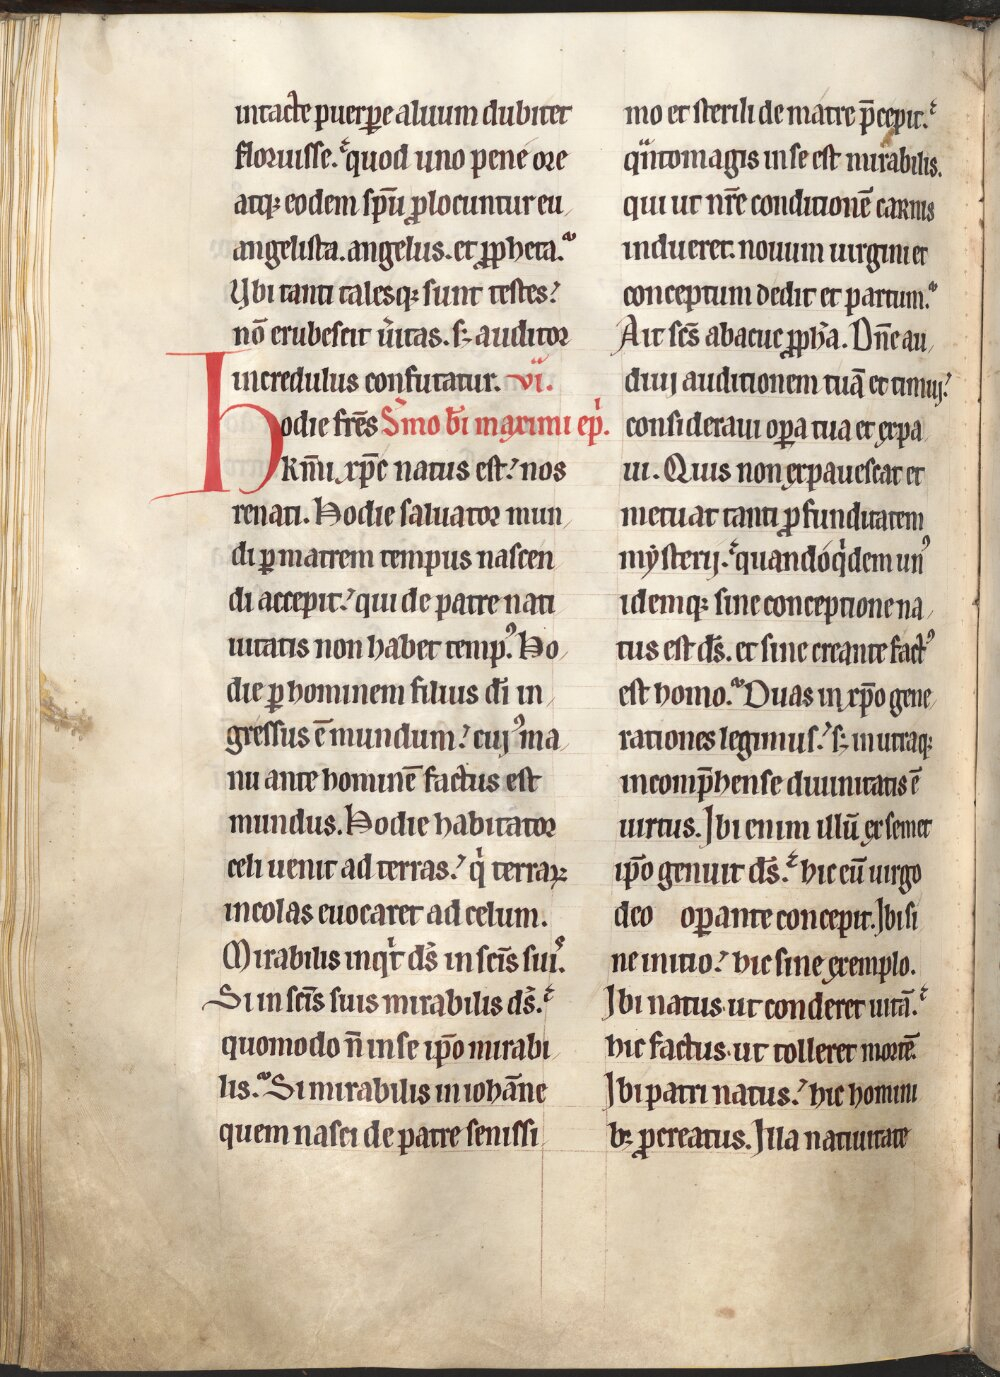 intacte puerpere aluum dubitet
floruisse. quod uno pene ore
atq; eodem sp̄u ꝓlocuntur eu
angelista. angelus. et ꝓpheta.
Vbi tanti talesq; sunt testes?
nō erubescit ùitas. sꝫ auditor
incredulus confutatur. vi.
Hodie fr̄es Sermo b̄i maximi ep̄i.
km̄i xp̄c natus est? nos
renati. Hodie saluator mun
di ꝑ matrem tempus nascen
di accepit? qui de patre nati
uitatis non habet tempꝰ. Ho
die ꝑ hominem filius dī in
gressus ē mundum? cuiꝰ ma
nu ante hominē factus est
mundus. Hodie habitator
celi uenit ad terras? qͥ terraꝝ
incolas euocaret ad celum.
Mirabilis inqͥt ds̄ in scīs suiꝰ.
Si in scīs suis mirabilis ds̄.
quomodo n̄ in se ip̄o mirabi
lis. Si mirabilis in iohāne
quem nasci de patre senissi
mo et sterili de matre p̄cepit.
qūtomagis in se est mirabilis.
qui ut nr̄e conditionē carnis
indueret. nouum uirgini et
conceptum dedit et partum.
Ait sc̄s abacuc ꝓph̄a. Dn̄e au
diui auditionem tuā et timui?
consideraui oꝑa tua et expa
ui. Quis non expauescat et
metuat tanti ꝓfunditatem
mysterij. quandoqͥdem unꝰ
idemq; sine conceptione na
tus est ds̄. et sine creante factꝰ
est homo. Duas in xp̄o gene
rationes legimus? sꝫ in utraq;
incomp̄hense diuinitatis ē
uirtus. Ibi enim illū ex semet
ip̄o genuit ds̄. hic eū uirgo
deo oꝑante concepit. Ibi si
ne initio? hic sine exemplo.
Ibi natus ut conderet uitā.
hic factus ut tolleret mortē.
Ibi patri natus? hic homini
bꝫ ꝓcreatus. Illa natiuitate